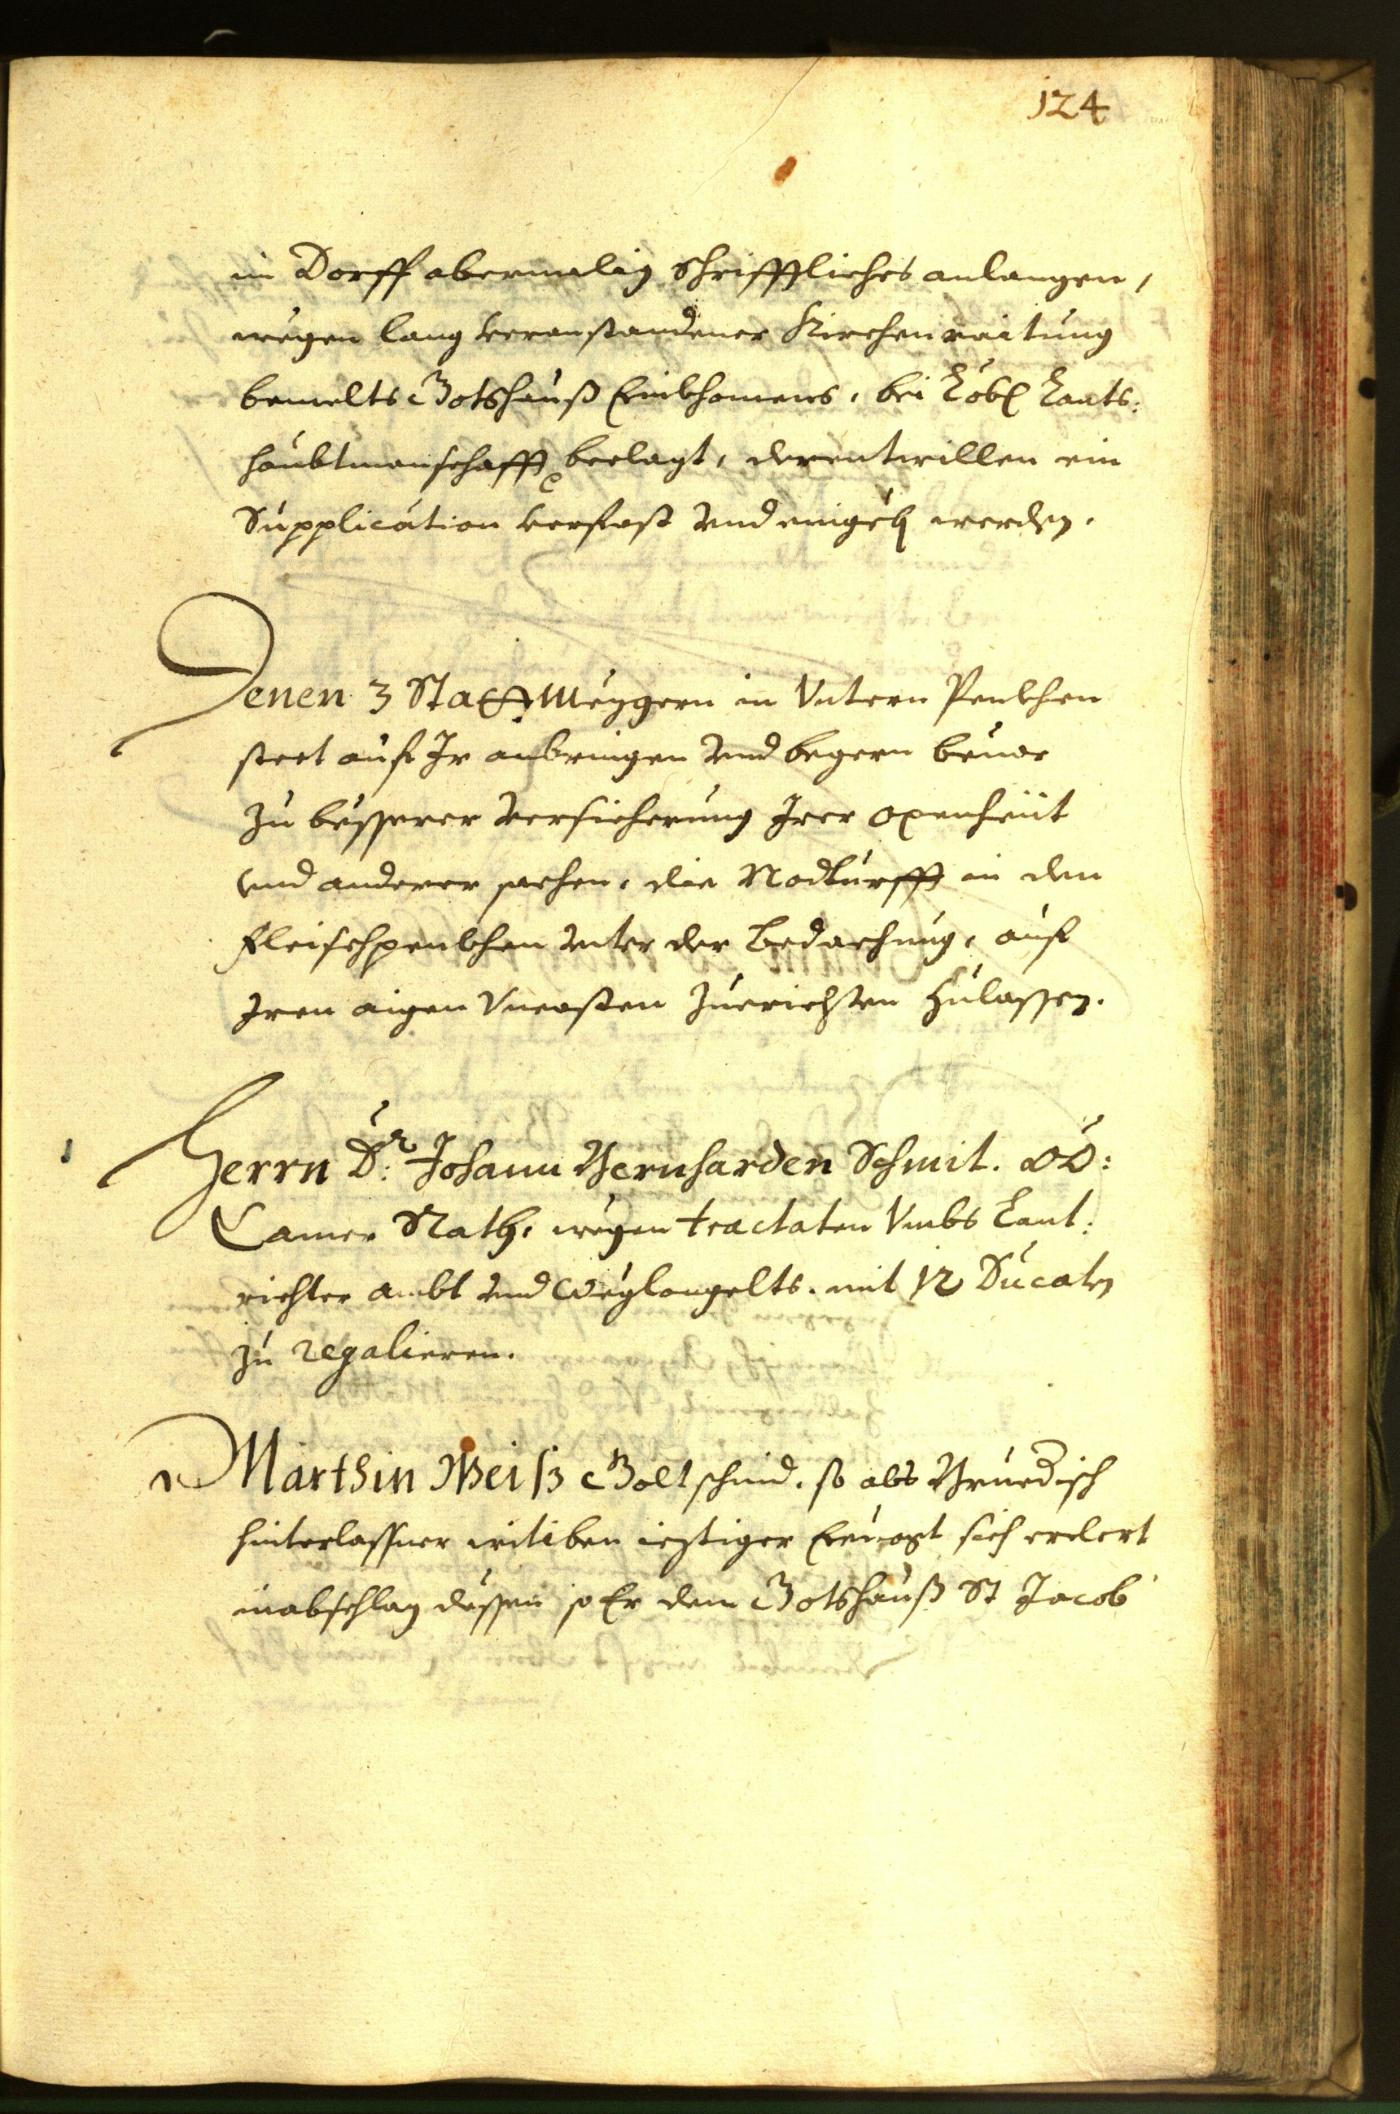 124
in Dorff abermalig schrifftliches anlangen,
wegen lang veranstandener Kirchenraitung
bemelts Gotshauß Einkhomens, bei Löbl Lants:
haubtmanschafft beclagt, derentwillen ein
Supplication verfast und eingeb werden.
Denen 3 Statt Mezgern in Untern Penkhen
steet auf Ir anbringen und begern bevor
zu besserer versicherung Irer oxenheüt
und anderer sachen, die Nodturfft in den
Fleischpenkhen unter der Bedachung, auf
Iren aigen Uncosten zuerichten zulassen.
Herrn Dr: Johann Bernharden Schmit. OÖ:
Camer Rath, wegen tractaten Umbs Lant:
richter ambt und Weglongelts. mit 12 Ducaten
zu regalieren.
Marthin Weiß Goltschmid. so als
hinterlassner witiben ieztiger sich erclert
in abschlag dessen so Er dem Gotshauß St Jacob